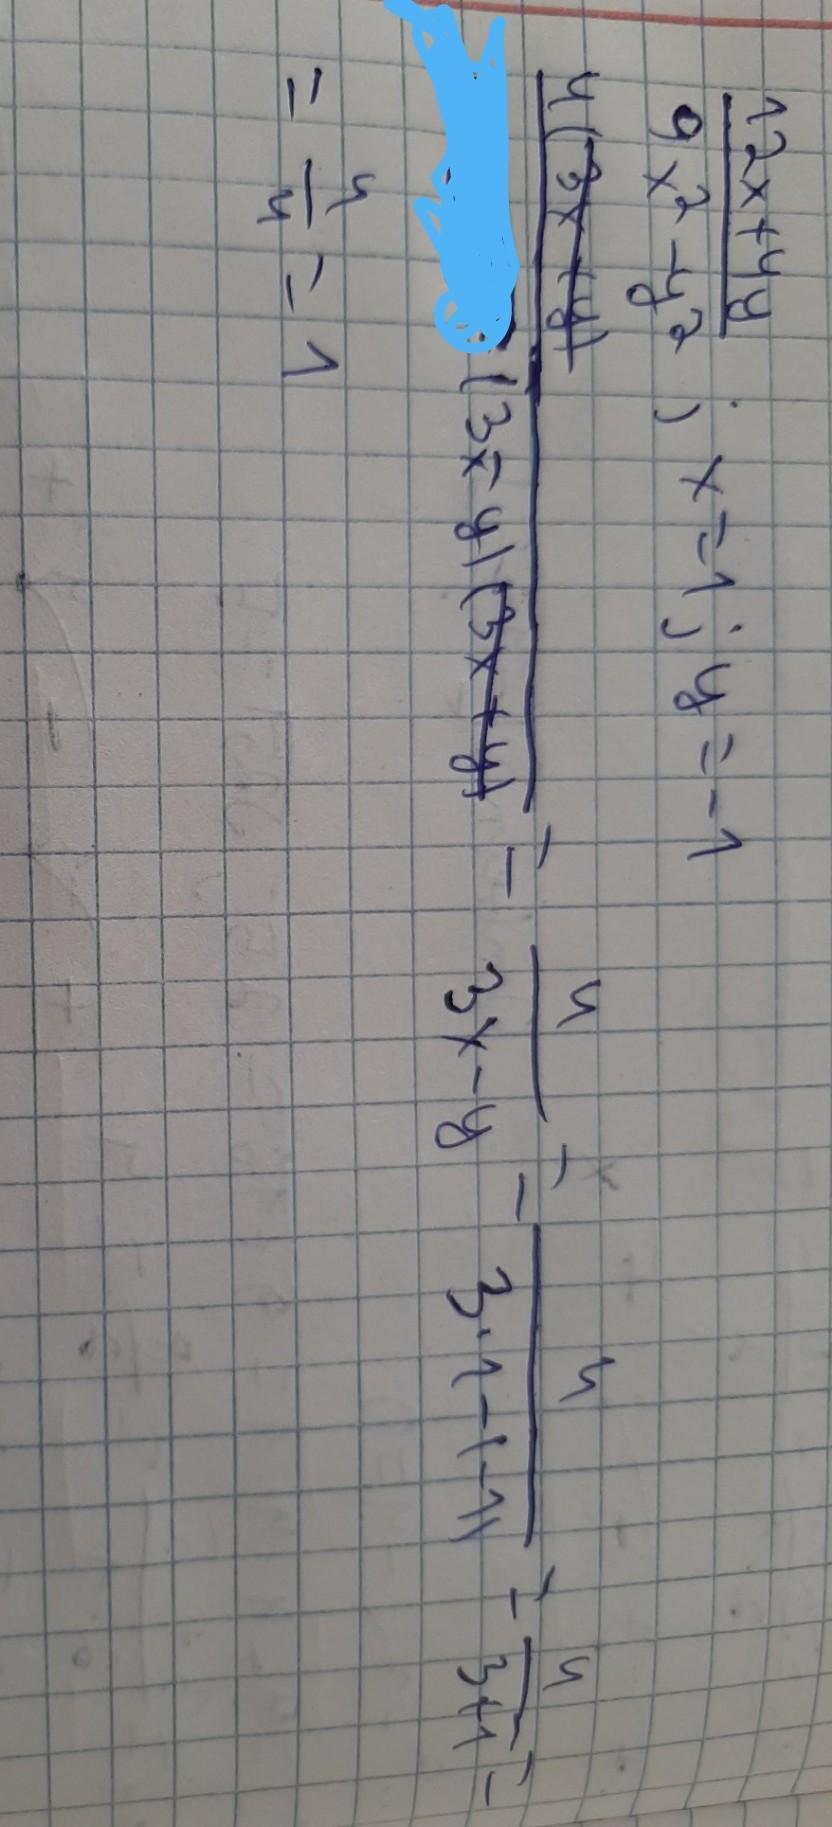 (12x+4y)/(9x²-y²) ; x=1; y=-1
(4(3x+y))/((3x-y)(3x+y)) = 4/(3x-y) = 4/(3·1-(-1)) = 4/(3+1) =
= 4/4 = 1